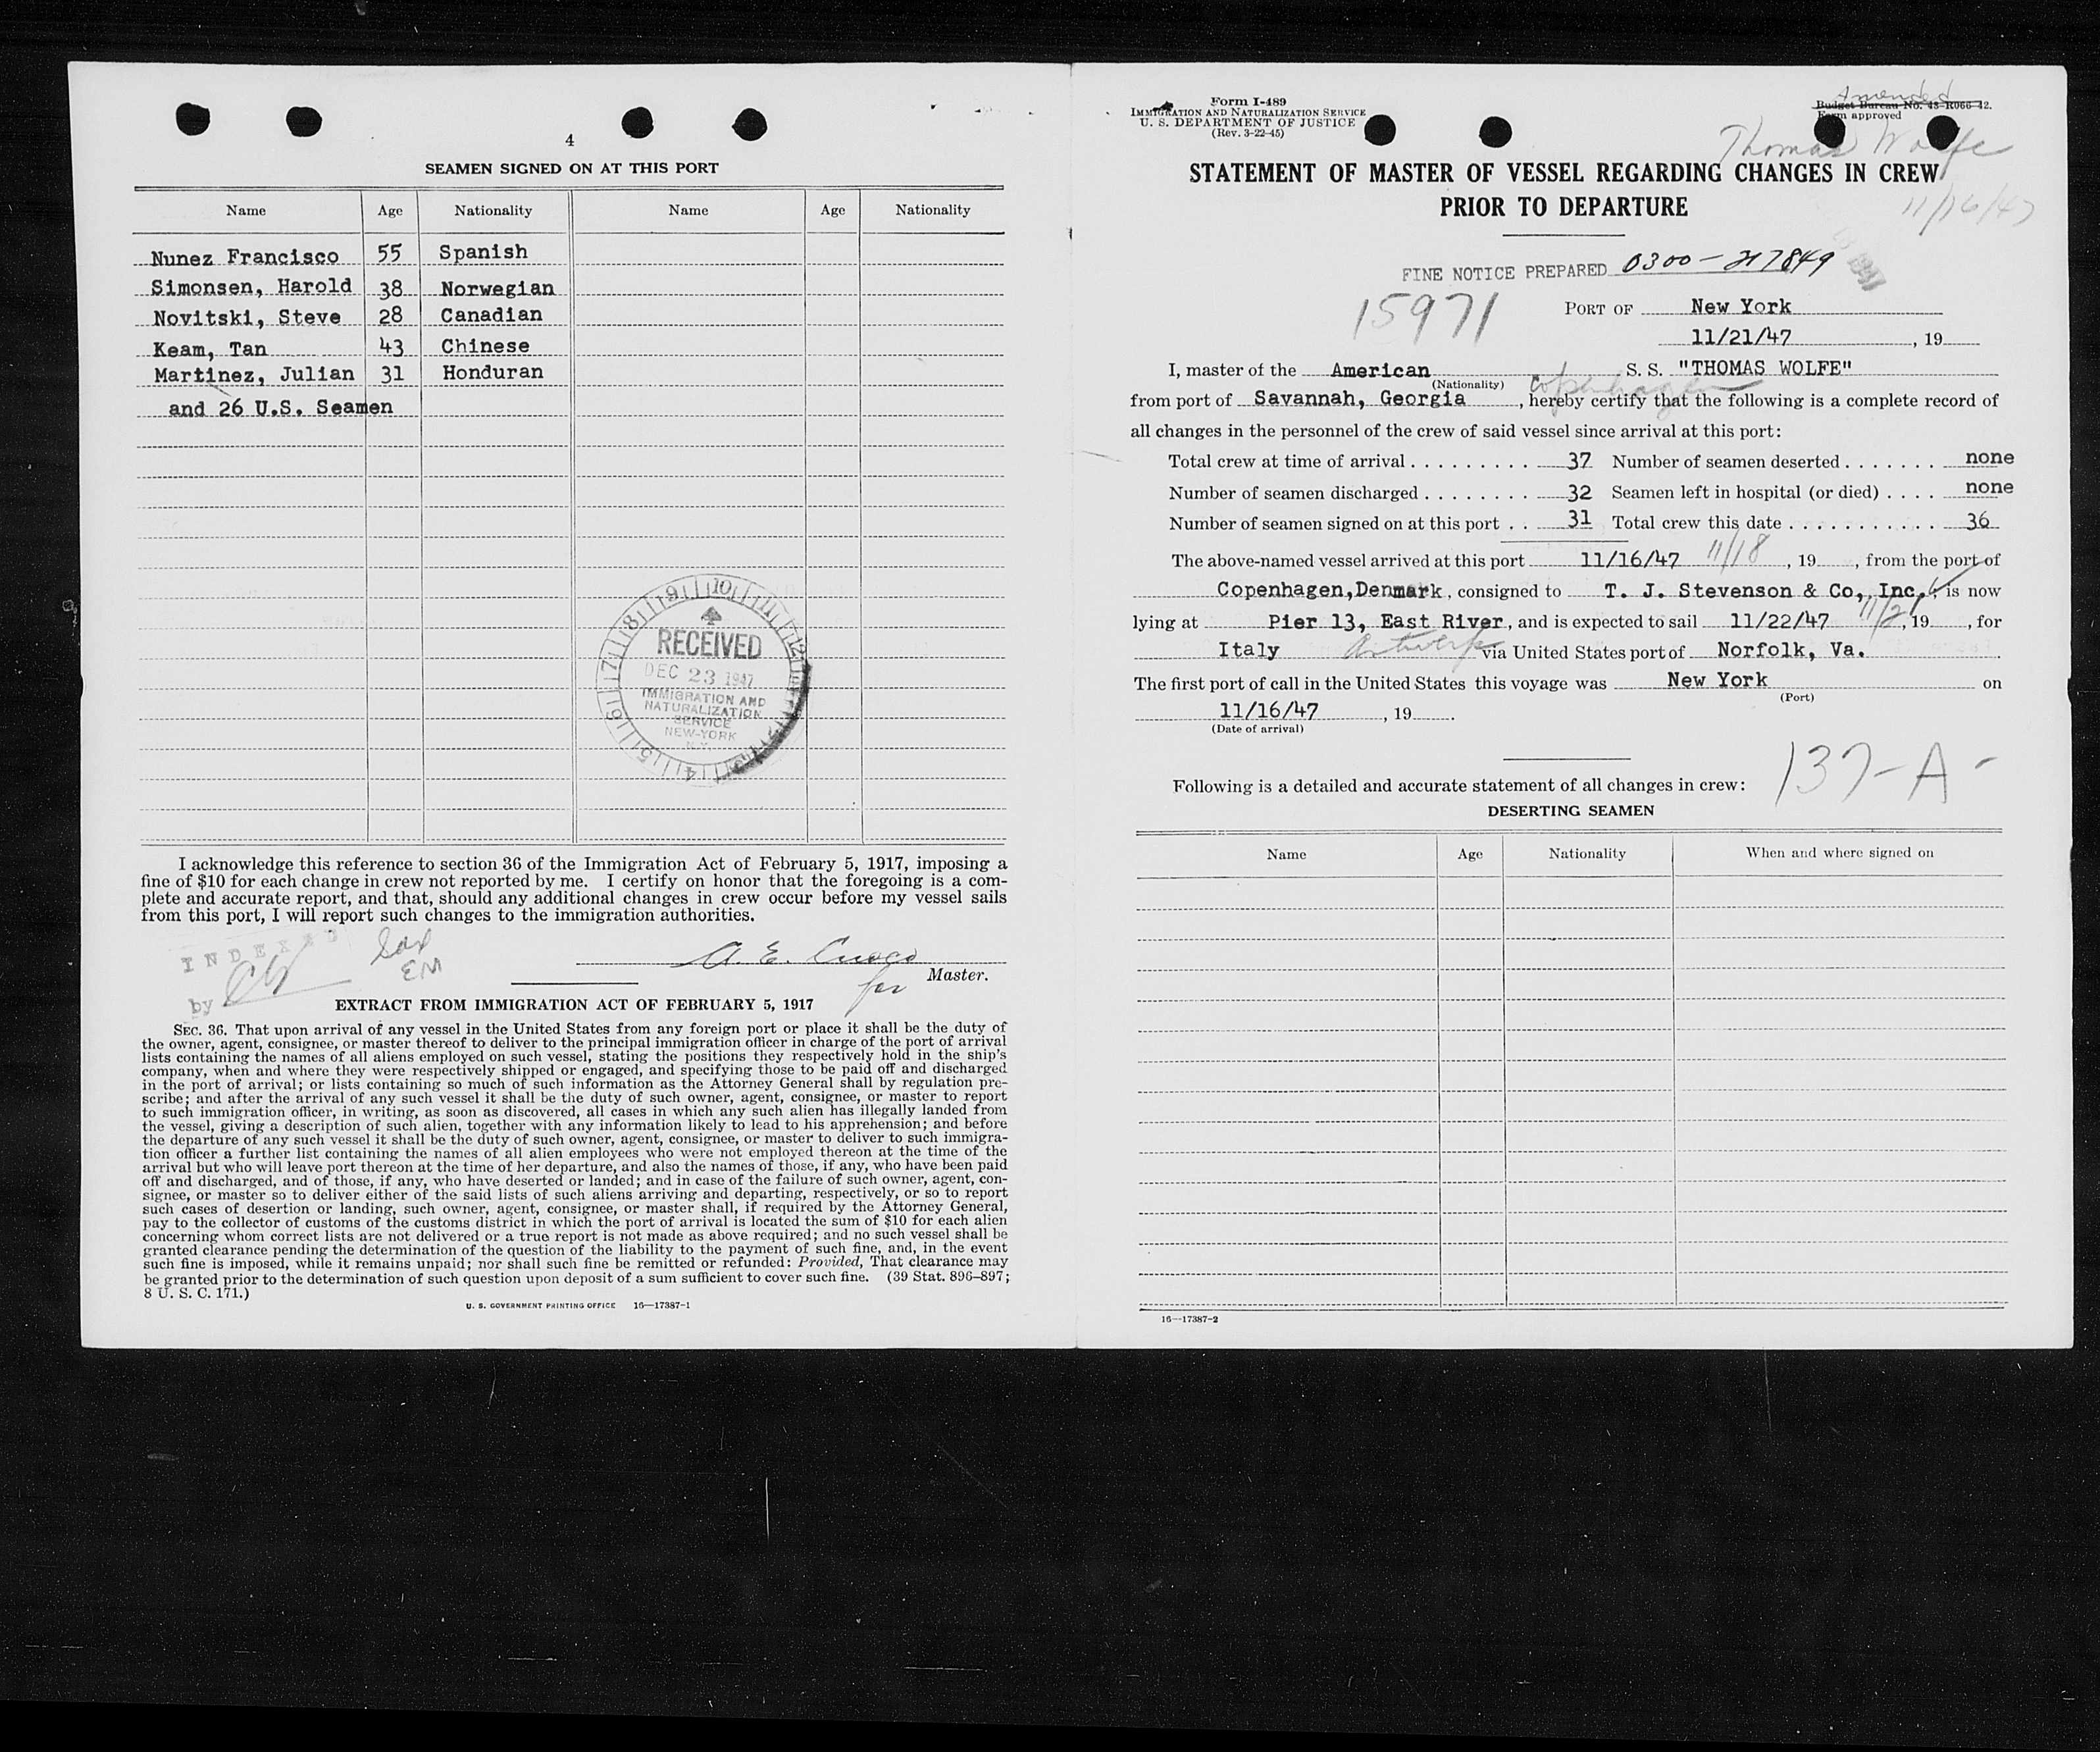 4
SEAMEN SIGNED ON AT THIS PORT
Name Age Nationality Name Age Nationality
Nunez Francisco 55 Spanish
Simonsen, Harold 38 Norwegian
Novitski, Steve 28 Canadian
Keam, Tan 43 Chinese
Martinez, Julian 31 Honduran
and 26 U.S. Seamen
10 11 12 4 5 16 17 8 9
RECEIVED
DEC 23 1947
IMMIGRATION AND
NATURALIZATION
SERVICE
NEW-YORK
N.Y.
I acknowledge this reference to section 36 of the Immigration Act of February 5, 1917, imposing a
fine of $10 for each change in crew not reported by me. I certify on honor that the foregoing is a com-
plete and accurate report, and that, should any additional changes in crew occur before my vessel sails
from this port, I will report such changes to the immigration authorities.
INDEXED
by
EM
A. E.
Master.
for
EXTRACT FROM IMMIGRATION ACT OF FEBRUARY 5, 1917
SEC. 36. That upon arrival of any vessel in the United States from any foreign port or place it shall be the duty of
the owner, agent, consignee, or master thereof to deliver to the principal immigration officer in charge of the port of arrival
lists containing the names of all aliens employed on such vessel, stating the positions they respectively hold in the ship's
company, when and where they were respectively shipped or engaged, and specifying those to be paid off and discharged
in the port of arrival; or lists containing so much of such information as the Attorney General shall by regulation pre-
scribe; and after the arrival of any such vessel it shall be the duty of such owner, agent, consignee, or master to report
to such immigration officer, in writing, as soon as discovered, all cases in which any such alien has illegally landed from
the vessel, giving a description of such alien, together with any information likely to lead to his apprehension; and before
the departure of any such vessel it shall be the duty of such owner, agent, consignee, or master to deliver to such immigra-
tion officer a further list containing the names of all alien employees who were not employed thereon at the time of the
arrival but who will leave port thereon at the time of her departure, and also the names of those, if any, who have been paid
off and discharged, and of those, if any, who have deserted or landed; and in case of the failure of such owner, agent, con-
signee, or master so to deliver either of the said lists of such aliens arriving and departing, respectively, or so to report
such cases of desertion or landing, such owner, agent, consignee, or master shall, if required by the Attorney General,
pay to the collector of customs of the customs district in which the port of arrival is located the sum of $10 for each alien
concerning whom correct lists are not delivered or a true report is not made as above required; and no such vessel shall be
granted clearance pending the determination of the question of the liability to the payment of such fine, and, in the event
such fine is imposed, while it remains unpaid; nor shall such fine be remitted or refunded: Provided, That clearance may
be granted prior to the determination of such question upon deposit of a sum sufficient to cover such fine. (39 Stat. 896–897;
8 U. S. C. 171.)
U. S. GOVERNMENT PRINTING OFFICE 16—17387-1
Form I-489
IMMIGRATION AND NATURALIZATION SERVICE
U. S. DEPARTMENT OF JUSTICE
(Rev. 3-22-45)
Amended
Budget Bureau No. 43-R066-42.
Form approved
Thomas Wolfe
STATEMENT OF MASTER OF VESSEL REGARDING CHANGES IN CREW
PRIOR TO DEPARTURE
11/16/47
FINE NOTICE PREPARED 0300-217849
15971
PORT OF New York
11/21/47, 19
I, master of the American S. S. "THOMAS WOLFE"
(Nationality) Copenhagen
from port of Savannah, Georgia, hereby certify that the following is a complete record of
all changes in the personnel of the crew of said vessel since arrival at this port:
Total crew at time of arrival . . . . . . . . . 37 Number of seamen deserted . . . . . . . none
Number of seamen discharged . . . . . . . . 32 Seamen left in hospital (or died) . . . . none
Number of seamen signed on at this port . . 31 Total crew this date . . . . . . . . . . . 36
The above-named vessel arrived at this port 11/16/47 11/18, 19 , from the port of
Copenhagen,Denmark, consigned to T. J. Stevenson & Co., Inc., is now
lying at Pier 13, East River, and is expected to sail 11/22/47 11/21, 19 , for
Italy Antwerp via United States port of Norfolk, Va.
The first port of call in the United States this voyage was New York on
(Port)
11/16/47, 19 .
(Date of arrival)
137-A-
Following is a detailed and accurate statement of all changes in crew:
DESERTING SEAMEN
Name Age Nationality When and where signed on
16—17387-2